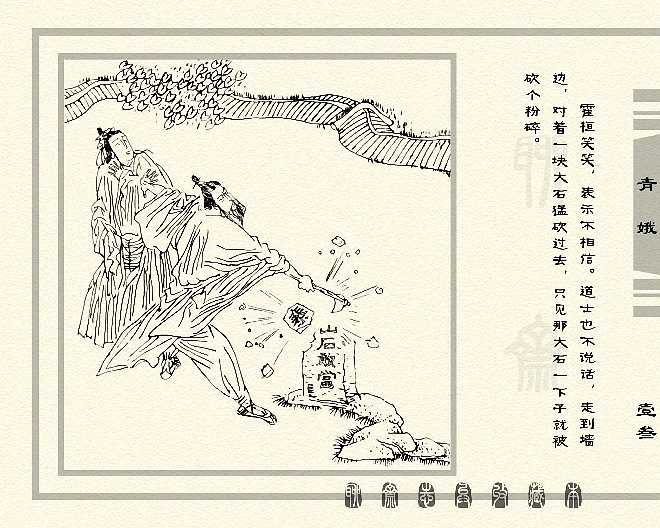 霍桓笑笑，表示不相信。道士也不说话，走到墙
边，对着一块大石猛砍过去，只见那大石一下子就被
砍个粉碎。
青娥
壹叁
山石敢當
聊斋志异收藏本